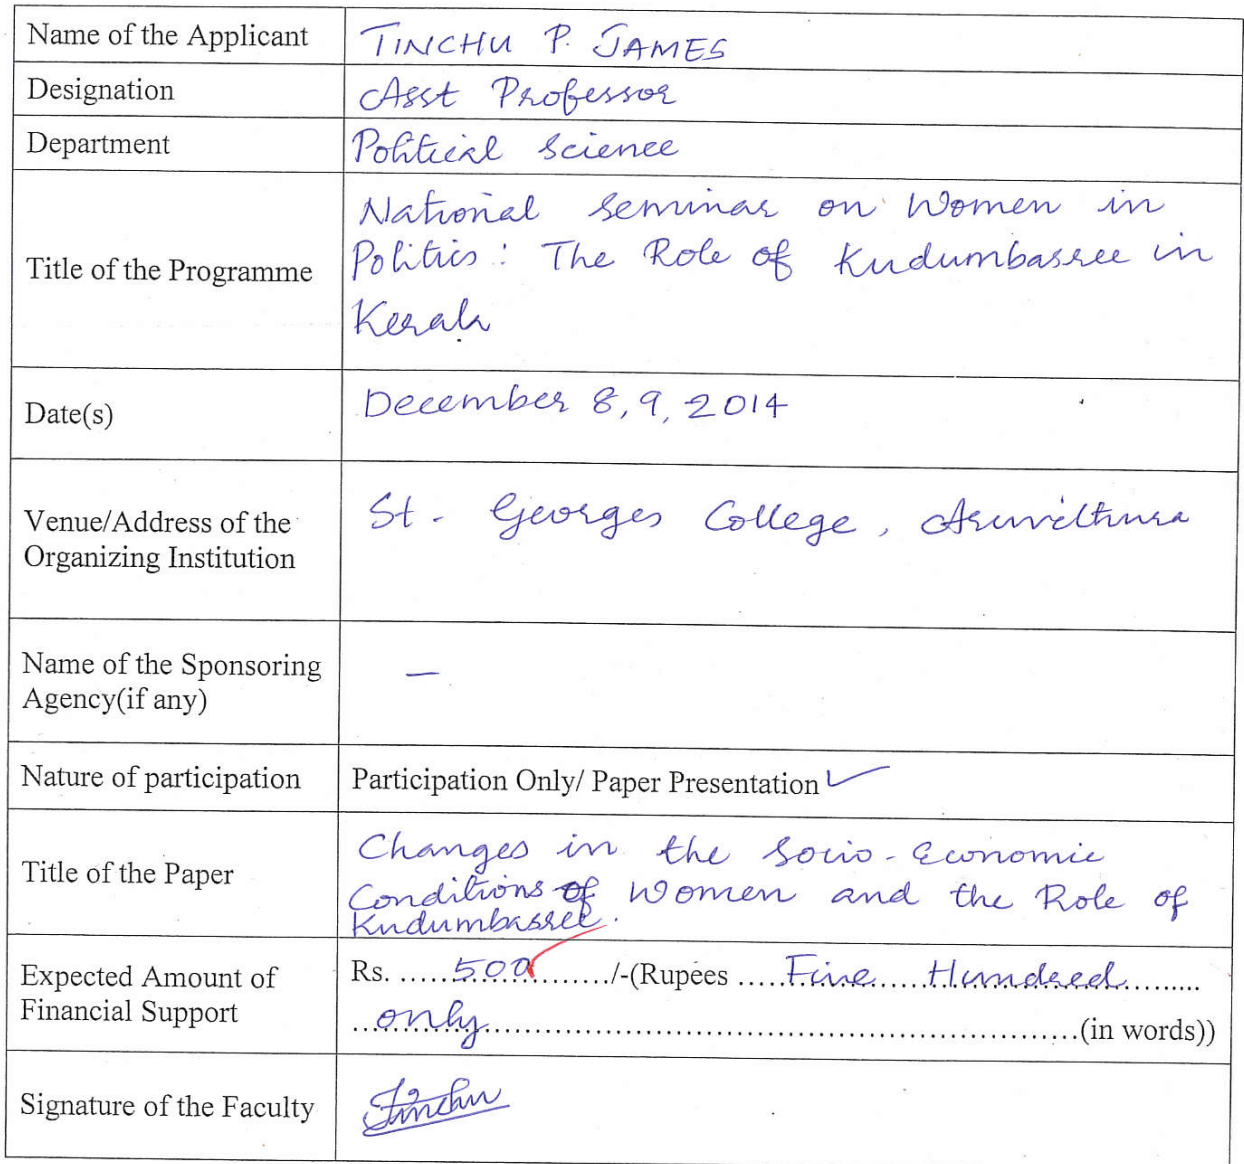 Name of the Applicant TINCHU P. JAMES
Designation Asst Professor
Department Political Science
Title of the Programme National Seminar on Women in
Politics: The Role of Kudumbasree in
Kerala
Date(s) December 8, 9, 2014
Venue/Address of the
Organizing Institution St. Georges College, Aruvithura
Name of the Sponsoring
Agency(if any) —
Nature of participation Participation Only/ Paper Presentation ✓
Title of the Paper Changes in the Socio-Economic
Conditions of Women and the Role of
Kudumbasree.
Expected Amount of
Financial Support Rs. .....500........./-(Rupees .....Five....Hundred........
...only..................................................................(in words))
Signature of the Faculty Tinchu